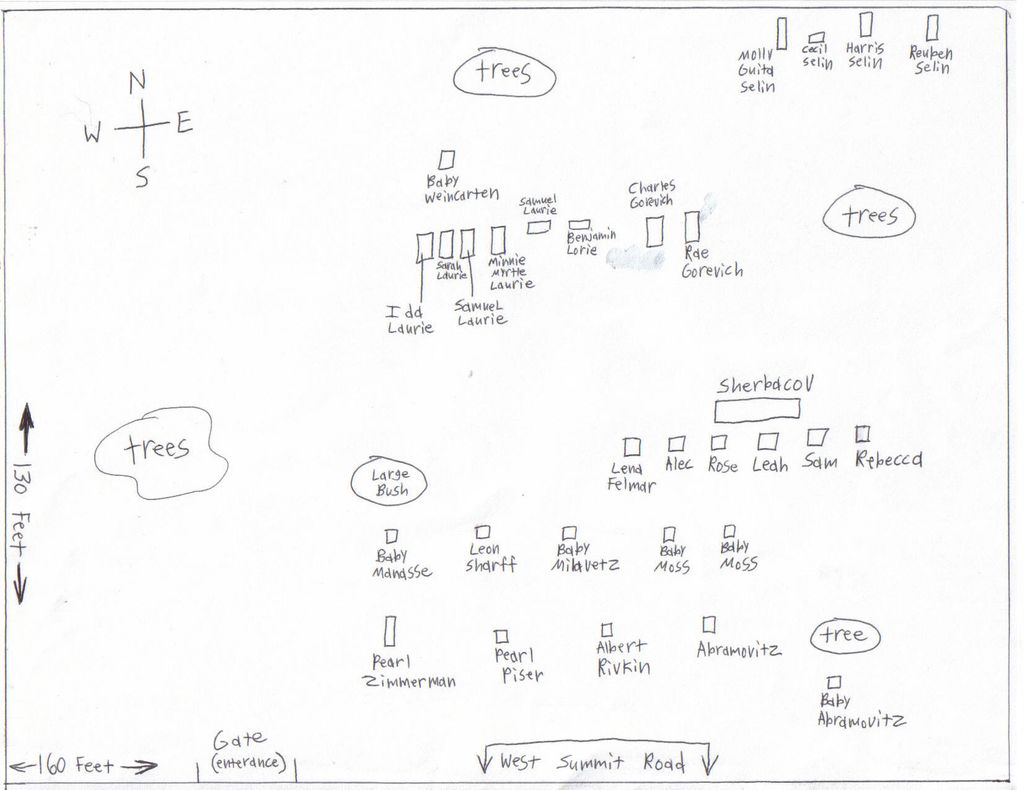 Molly
Guita
Selin
Cecil
Selin
Harris
Selin
Reuben
Selin
trees
N
W
E
S
Baby
Weincarten
Samuel
Laurie
Charles
Gorevich
trees
Benjamin
Lorie
Rae
Gorevich
Sarah
Laurie
Minnie
Myrtle
Laurie
Idd
Laurie
Samuel
Laurie
Sherbacov
trees
Lena
Felmar
Alec
Rose
Leah
Sam
Rebecca
Large
Bush
130 Feet
Baby
Manasse
Leon
Sharff
Baby
Milavetz
Baby
Moss
Baby
Moss
Pearl
Zimmerman
Pearl
Piser
Albert
Rivkin
Abramovitz
tree
Baby
Abramovitz
160 Feet
Gate
(enterance)
West Summit Road